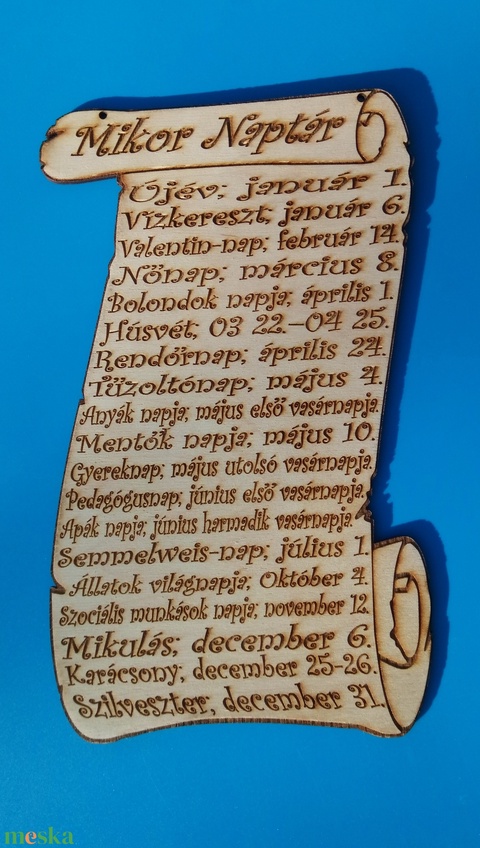 Mikor Naptár
Újév; január 1.
Vízkereszt; január 6.
Valentin-nap; február 14.
Nőnap; március 8.
Bolondok napja; április 1.
Húsvét; 03 22.-04 25.
Rendőrnap; április 24.
Tűzoltónap; május 4.
Anyák napja; május első vasárnapja.
Mentők napja; május 10.
Gyereknap; május utolsó vasárnapja.
Pedagógusnap; június első vasárnapja.
Apák napja; június harmadik vasárnapja.
Semmelweis-nap; július 1.
Állatok világnapja; Október 4.
Szociális munkások napja; november 12.
Mikulás; december 6.
Karácsony; december 25-26.
Szilveszter, december 31.
meska